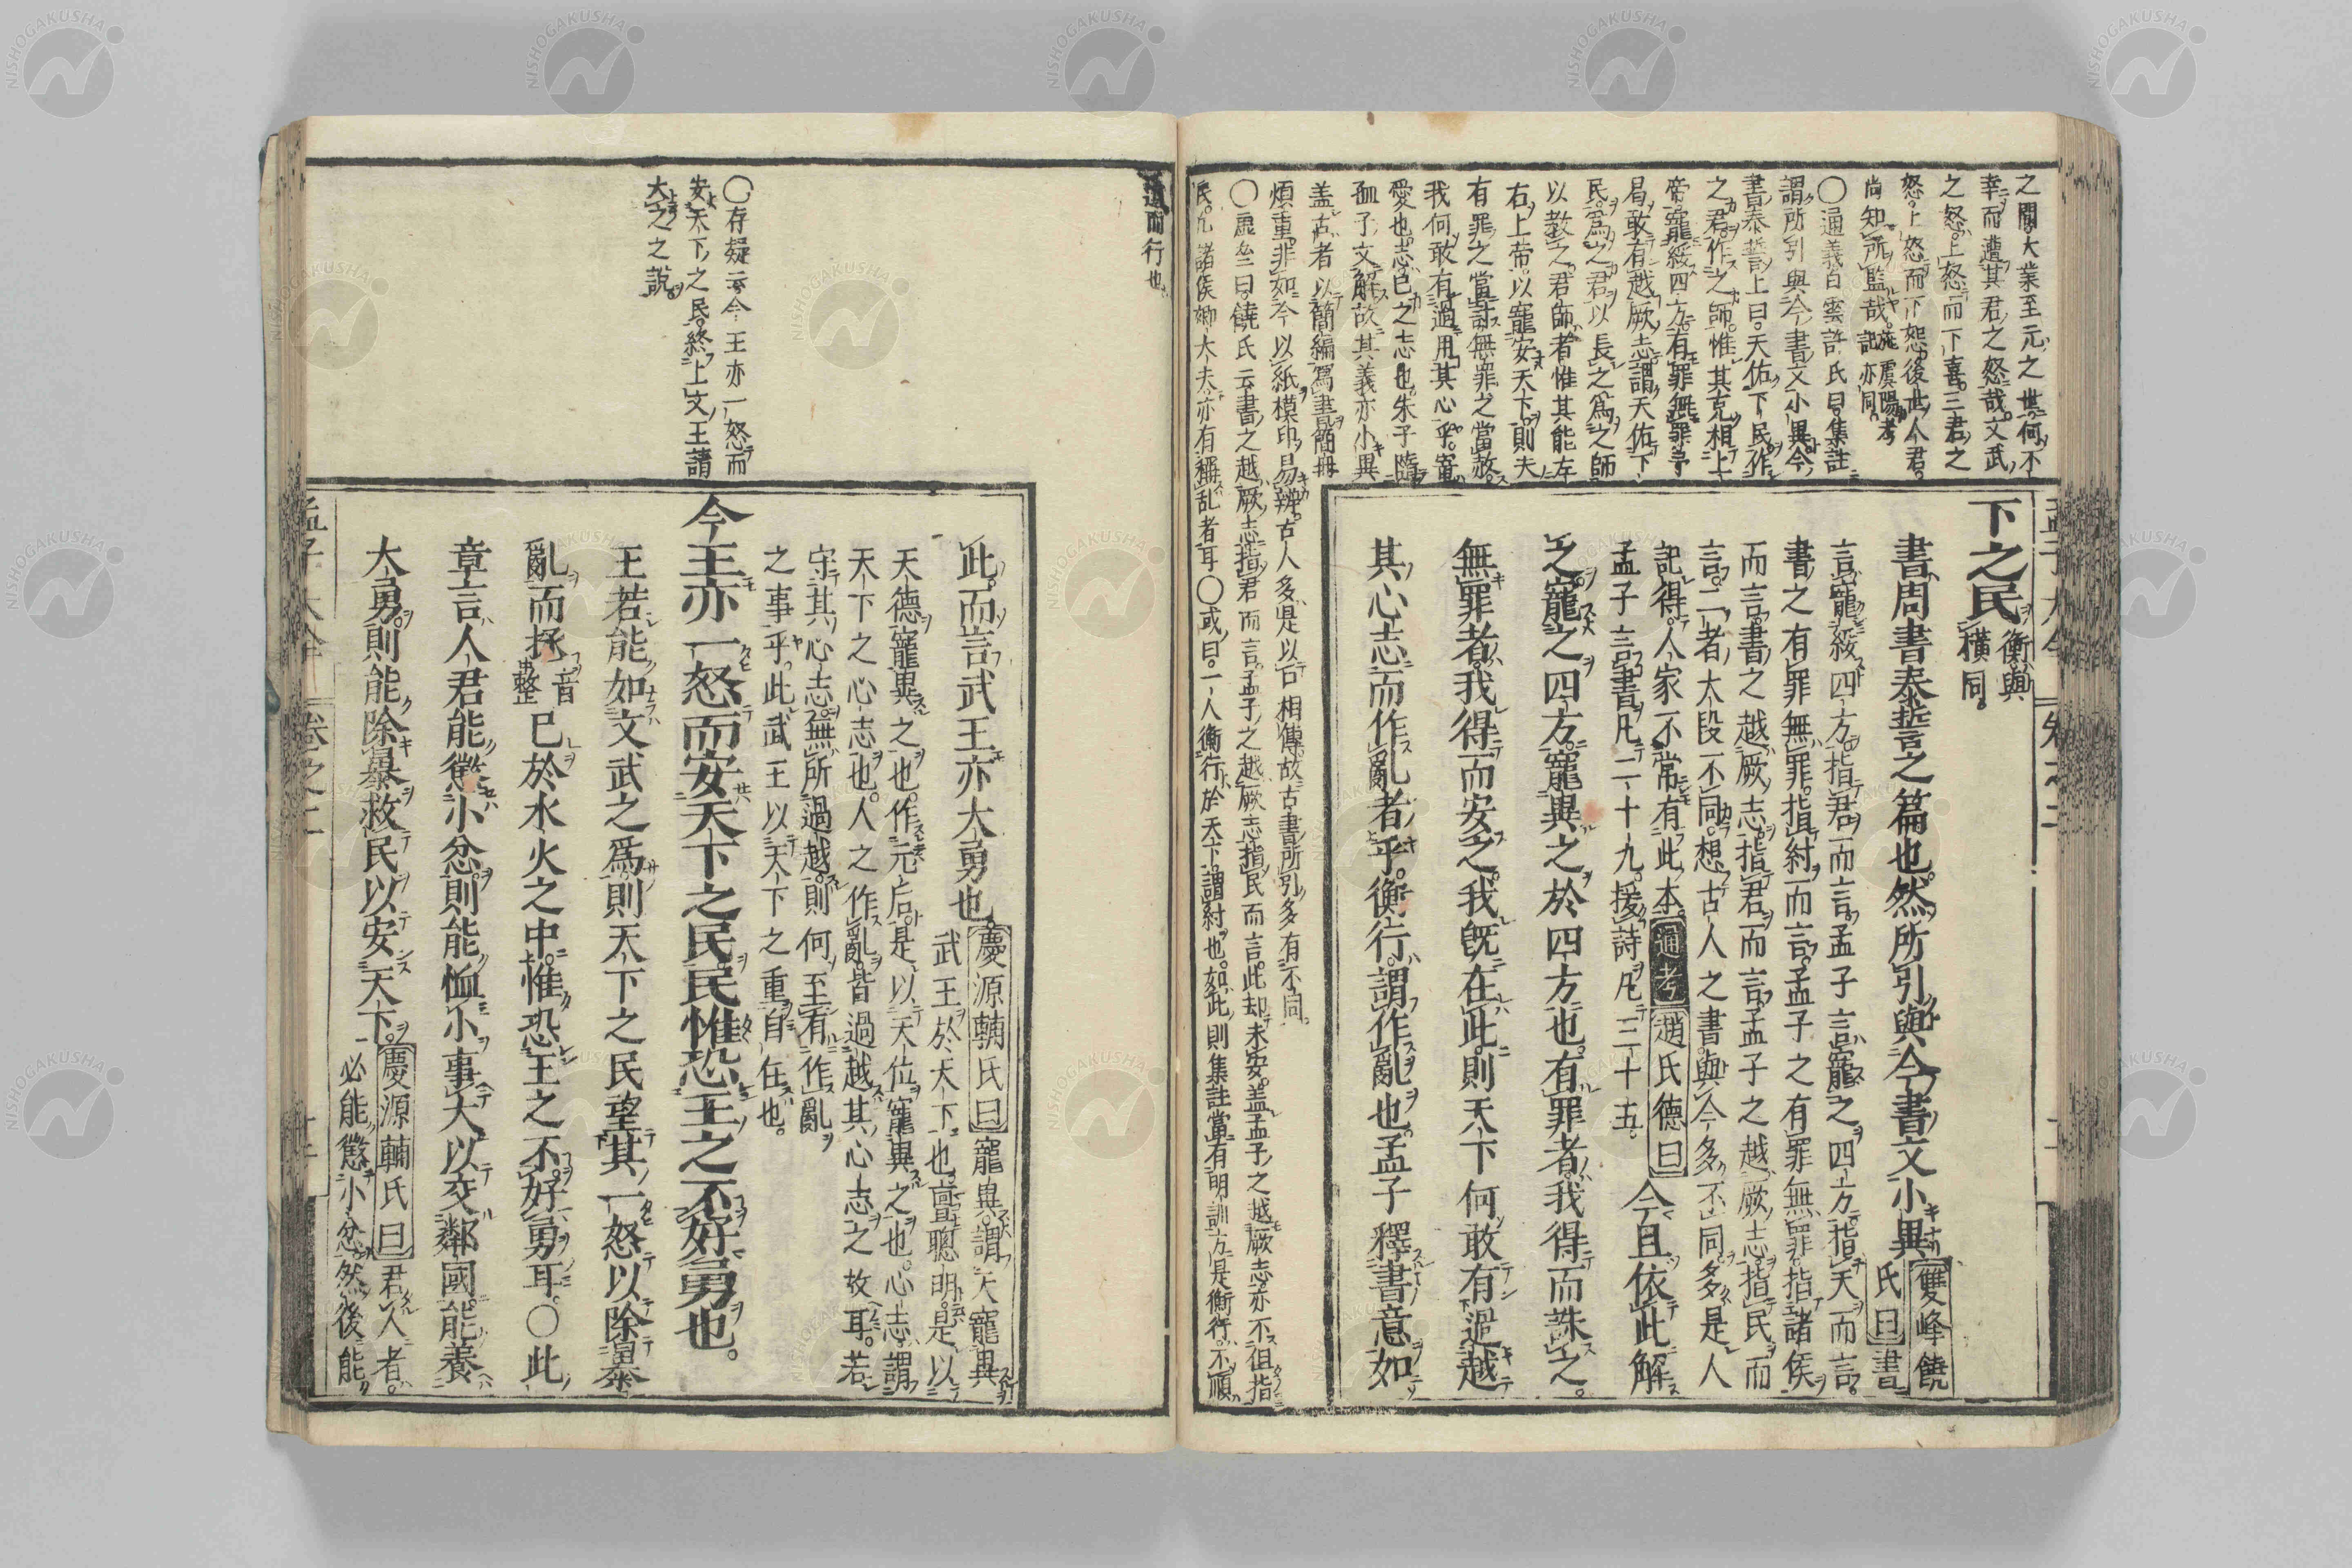 之間大業至元之世何不
幸而遭其君之怒哉文武
之怒上怒而下喜三君之
怒上怒而下怨後世人君
尚知所監哉
虞陽考
記亦同
○通義白雲許氏曰集註
謂所引與今書文小異今
書泰誓上曰天佑下民作
之君作之師惟其克相上
帝寵綏四方有罪無罪予
曷敢有越厥志謂天佑下
民爲之君以長之爲之師
以教之君師者惟其能左
右上帝以寵安天下則夫
有罪之當討無罪之當赦
我何敢有過用其心乎寵
愛也志己之志也朱子隨
孟子文解故其義亦小異
蓋古者以簡編爲書簡冊
煩重非如今以紙模印易辨古人多是以口相傳故古書所引多有不同
○曰饒氏云書之越厥志指君而言孟子之越厥志指民而言此却未安蓋孟子之越厥志亦不徂指
民凡諸侯卿大夫亦有稱乱者耳○或曰一人衡行於天下謂紂也如此則集註當有明訓方是衡行不順
下之民
衡與
橫同
書周書泰誓之篇也然所引與今書文小異
雙峰饒
氏曰書
言寵綏四方指君而言孟子言寵之四方指天而言
書之有罪無罪指紂而言孟子之有罪無罪指諸侯
而言書之越厥志指君而言孟子之越厥志指民而
言二者大段不同想古人之書與今多不同多是人
記得人家不常有此本通考趙氏德曰
孟子言書凡二十九援詩凡三十五
今且依此解
之寵之四方寵異之於四方也有罪者我得而誅之
無罪者我得而安之我既在此則天下何敢有過越
其心志而作亂者乎衡行謂作亂也孟子釋書意如
孟子大全 卷之二
道而行也
此而言武王亦大勇也
慶源輔氏曰寵異謂天寵異
武王於天下也亶聰明是以
天德寵異之也作元后是以天位寵異之也心志謂
天下之心志也人之作亂皆過越其心志之故耳若
守其心志無所過越則何至有作亂
之事乎此武王以天下之重自任也
今王亦一怒而安天下之民民惟恐王之不好勇也
王若能如文武之爲則天下之民望其一怒以除暴
亂而拯
音
整
已於水火之中惟恐王之不好勇耳○此
章言人君能懲小忿則能恤小事大以交鄰國能養
大勇則能除暴救民以安天下
慶源輔氏曰君人者
必能懲小忿然後能
○存疑云今王亦一怒而
安天下之民終上文王請
大之之說
孟子大全 卷之二